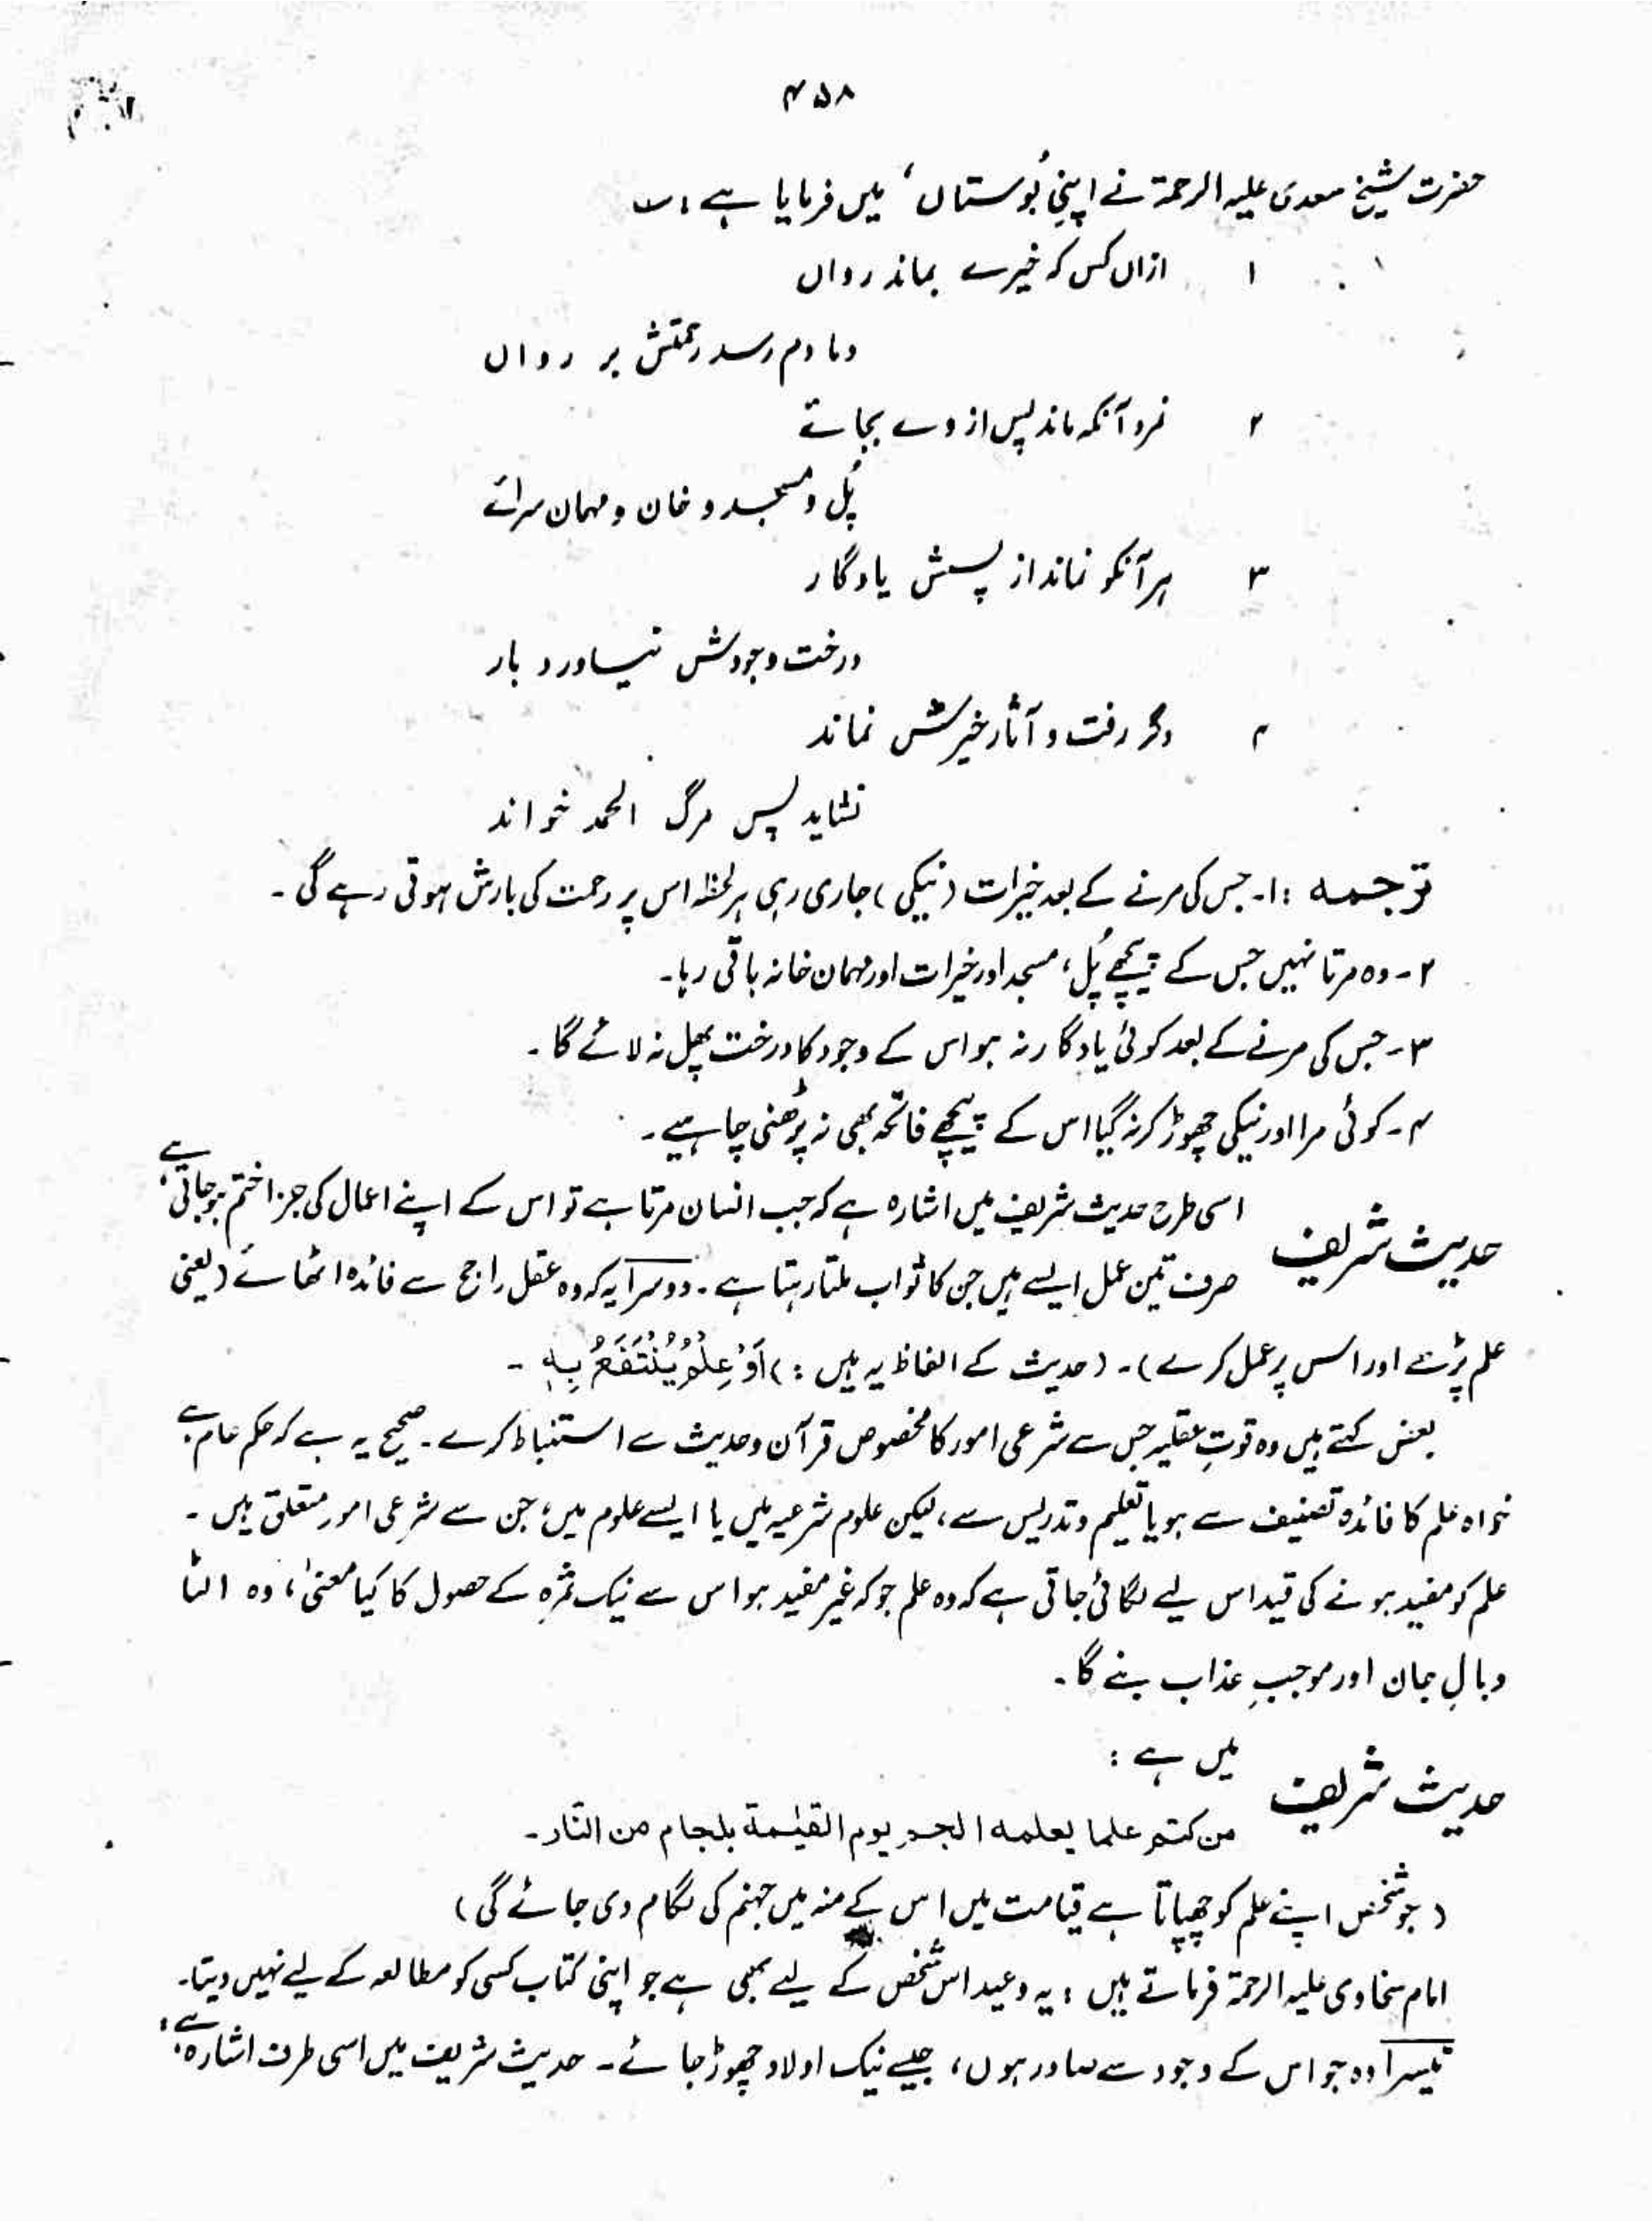 ۴۵۸
حضرت شیخ سعدی علیہ الرحمۃ نے اپنی بُوستاں، میں فرمایا ہے: ؎
۱ ازاں کس کہ خیرے بماند رواں
دمادم رسد رحمتش بر رواں
۲ نمرد آنکہ ماند پس از وے بجائے
پُل و مسجد و خان و مہمان سرائے
۳ ہر آنکو نماند از پسش یادگار
درخت وجودش نیاورد بار
۴ وگر رفت و آثار خیرش نماند
نشاید پس مرگ الحمد خواند
ترجمہ: ۱۔ جس کی مرنے کے بعد خیرات (نیکی) جاری رہی ہر لحظہ اس پر رحمت کی بارش ہوتی رہے گی۔
۲۔ وہ مرتا نہیں جس کے پیچھے پُل، مسجد اور خیرات اور مہمان خانہ باقی رہا۔
۳۔ جس کی مرنے کے بعد کوئی یادگار نہ ہو اس کے وجود کا درخت پھل نہ لائے گا۔
۴۔ کوئی مرا اور نیکی چھوڑ کر نہ گیا اس کے پیچھے فاتحہ بھی نہ پڑھنی چاہیے۔
حدیث شریف اسی طرح حدیث شریف میں اشارہ ہے کہ جب انسان مرتا ہے تو اس کے اپنے اعمال کی جزا ختم ہو جاتی ہے،
صرف تین عمل ایسے ہیں جن کا ثواب ملتا رہتا ہے۔ دوسرا یہ کہ وہ عقل راجح سے فائدہ اٹھائے (یعنی
علم پڑھے اور اس پر عمل کرے)۔ (حدیث کے الفاظ یہ ہیں:) اَوْ عِلْمٌ یُنْتَفَعُ بِہٖ ۔
بعض کہتے ہیں وہ قوتِ عقلیہ جس سے شرعی امور کا مخصوص قرآن و حدیث سے استنباط کرے۔ صحیح یہ ہے کہ حکم عام ہے
خواہ علم کا فائدہ تصنیف سے ہو یا تعلیم و تدریس سے، لیکن علوم شرعیہ میں یا ایسے علوم میں، جن سے شرعی امور متعلق ہیں۔
علم کو مفید ہونے کی قید اس لیے لگائی جاتی ہے کہ وہ علم جو کہ غیر مفید ہو اس سے نیک ثمرہ کے حصول کا کیا معنیٰ، وہ الٹا
وبالِ جان اور موجبِ عذاب بنے گا۔
حدیث شریف میں ہے:
من کتم علما یعلمہ الجم یوم القیٰمۃ بلجام من النّار۔
(جو شخص اپنے علم کو چھپاتا ہے قیامت میں اس کے منہ میں جہنم کی لگام دی جائے گی)
امام سخاوی علیہ الرحمۃ فرماتے ہیں: یہ وعید اس شخص کے لیے بھی ہے جو اپنی کتاب کسی کو مطالعہ کے لیے نہیں دیتا۔
تیسرا وہ جو اس کے وجود سے صادر ہوں، جیسے نیک اولاد چھوڑ جائے۔ حدیث شریف میں اسی طرف اشارہ ہے: